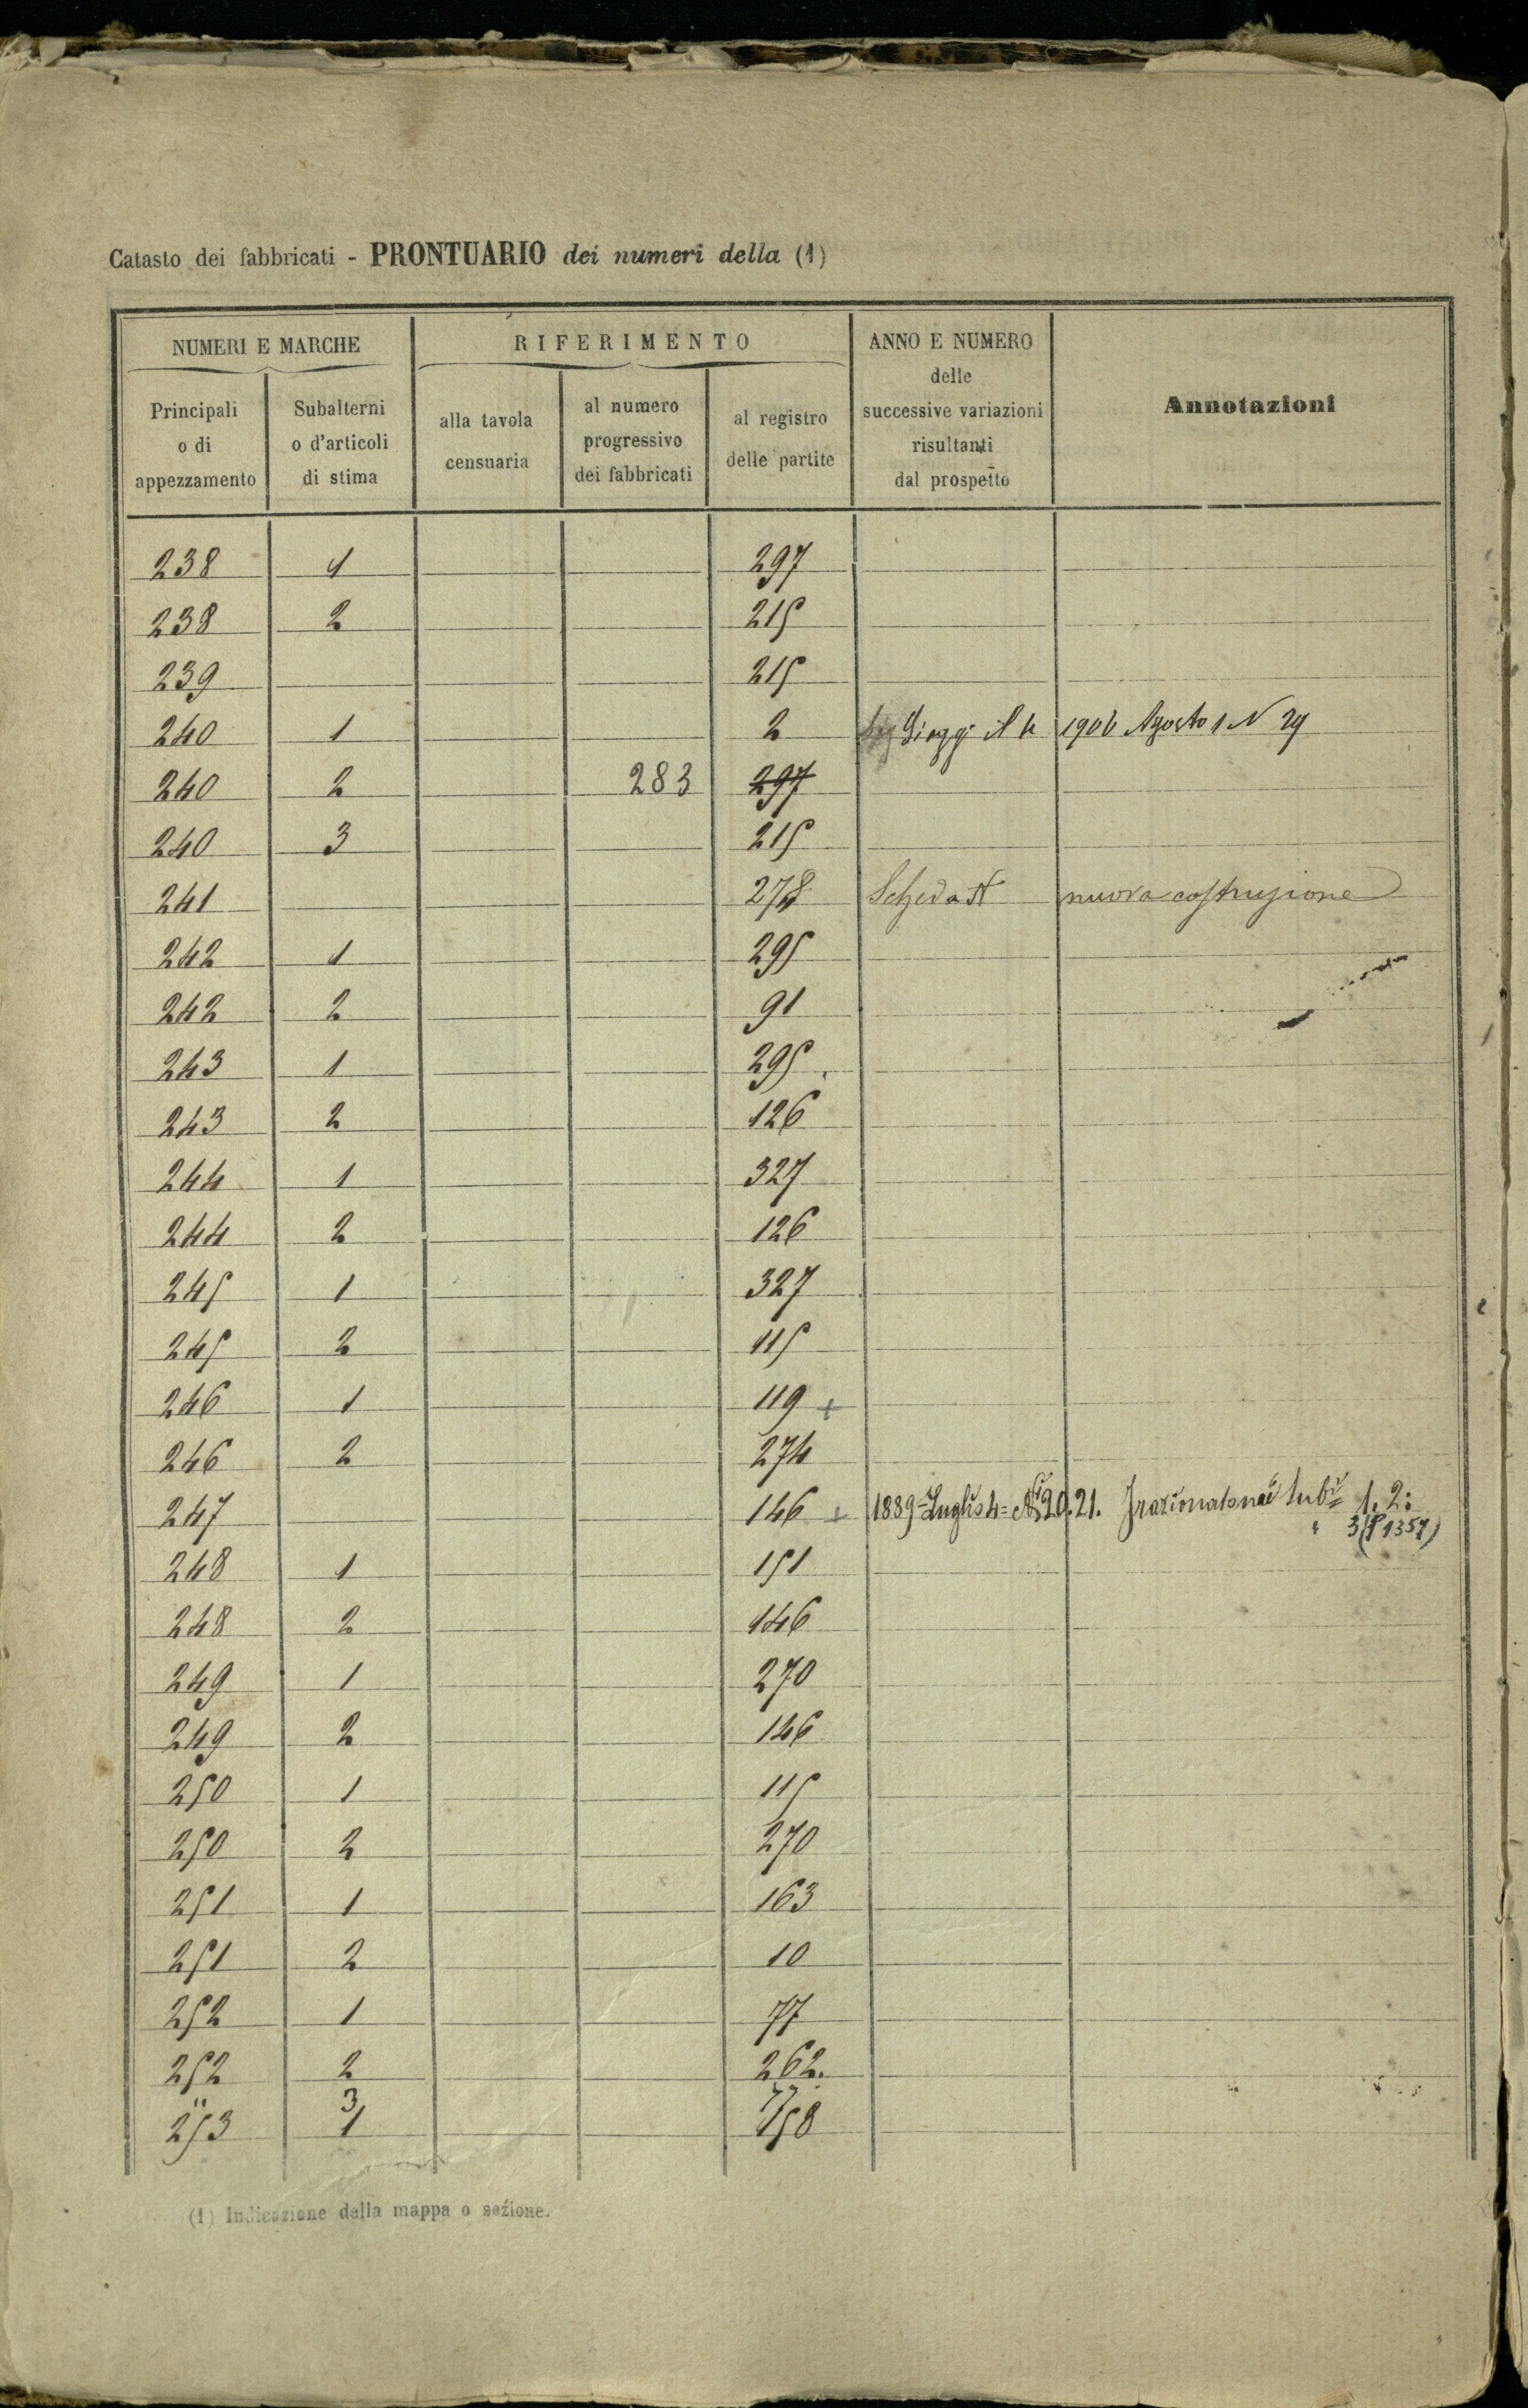 Catasto dei fabbricati - PRONTUARIO dei numeri della (1)
NUMERI E MARCHE
RIFERIMENTO
ANNO E NUMERO
delle
successive variazioni
risultanti
dal prospetto
Annotazioni
Principali
o di
appezzamento
Subalterni
o d'articoli
di stima
alla tavola
censuaria
al numero
progressivo
dei fabbricati
al registro
delle partite
238 1 297
238 2 215
239 215
240 1 2 1906 Agosto 1 N 29
240 2 283 297
240 3 215
241 278 Scheda A nuova costruzione
242 1 295
242 2 91
243 1 295
243 2 126
244 1 327
244 2 126
245 1 327
245 2 115
246 1 119 +
246 2 274
247 146 + 1889 = Luglio 4 = Ni 20.21. 1. 2:
" 3 (P 1357)
248 1 151
248 2 146
249 1 270
249 2 146
250 1 115
250 2 270
251 1 163
251 2 10
252 1 77
252 2 262.
" 3 77
253 1 158
(1) Indicazione della mappa o sezione.